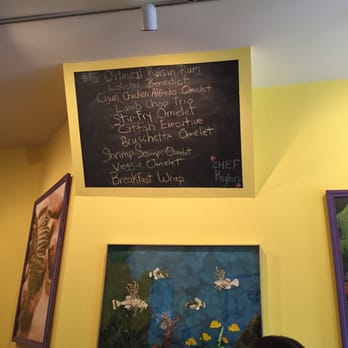 #85 Oatmeal Raisin Rum
Lobster Benedict
Cajun Chicken Alfredo Omelet
Lamb Chop Trio
Stir-Fry Omelet
Catfish Executive
Bruschetta Omelet
Shrimp Scampi Omelet
Veggie Omelet
Breakfast Wrap
CHEF
Rylon